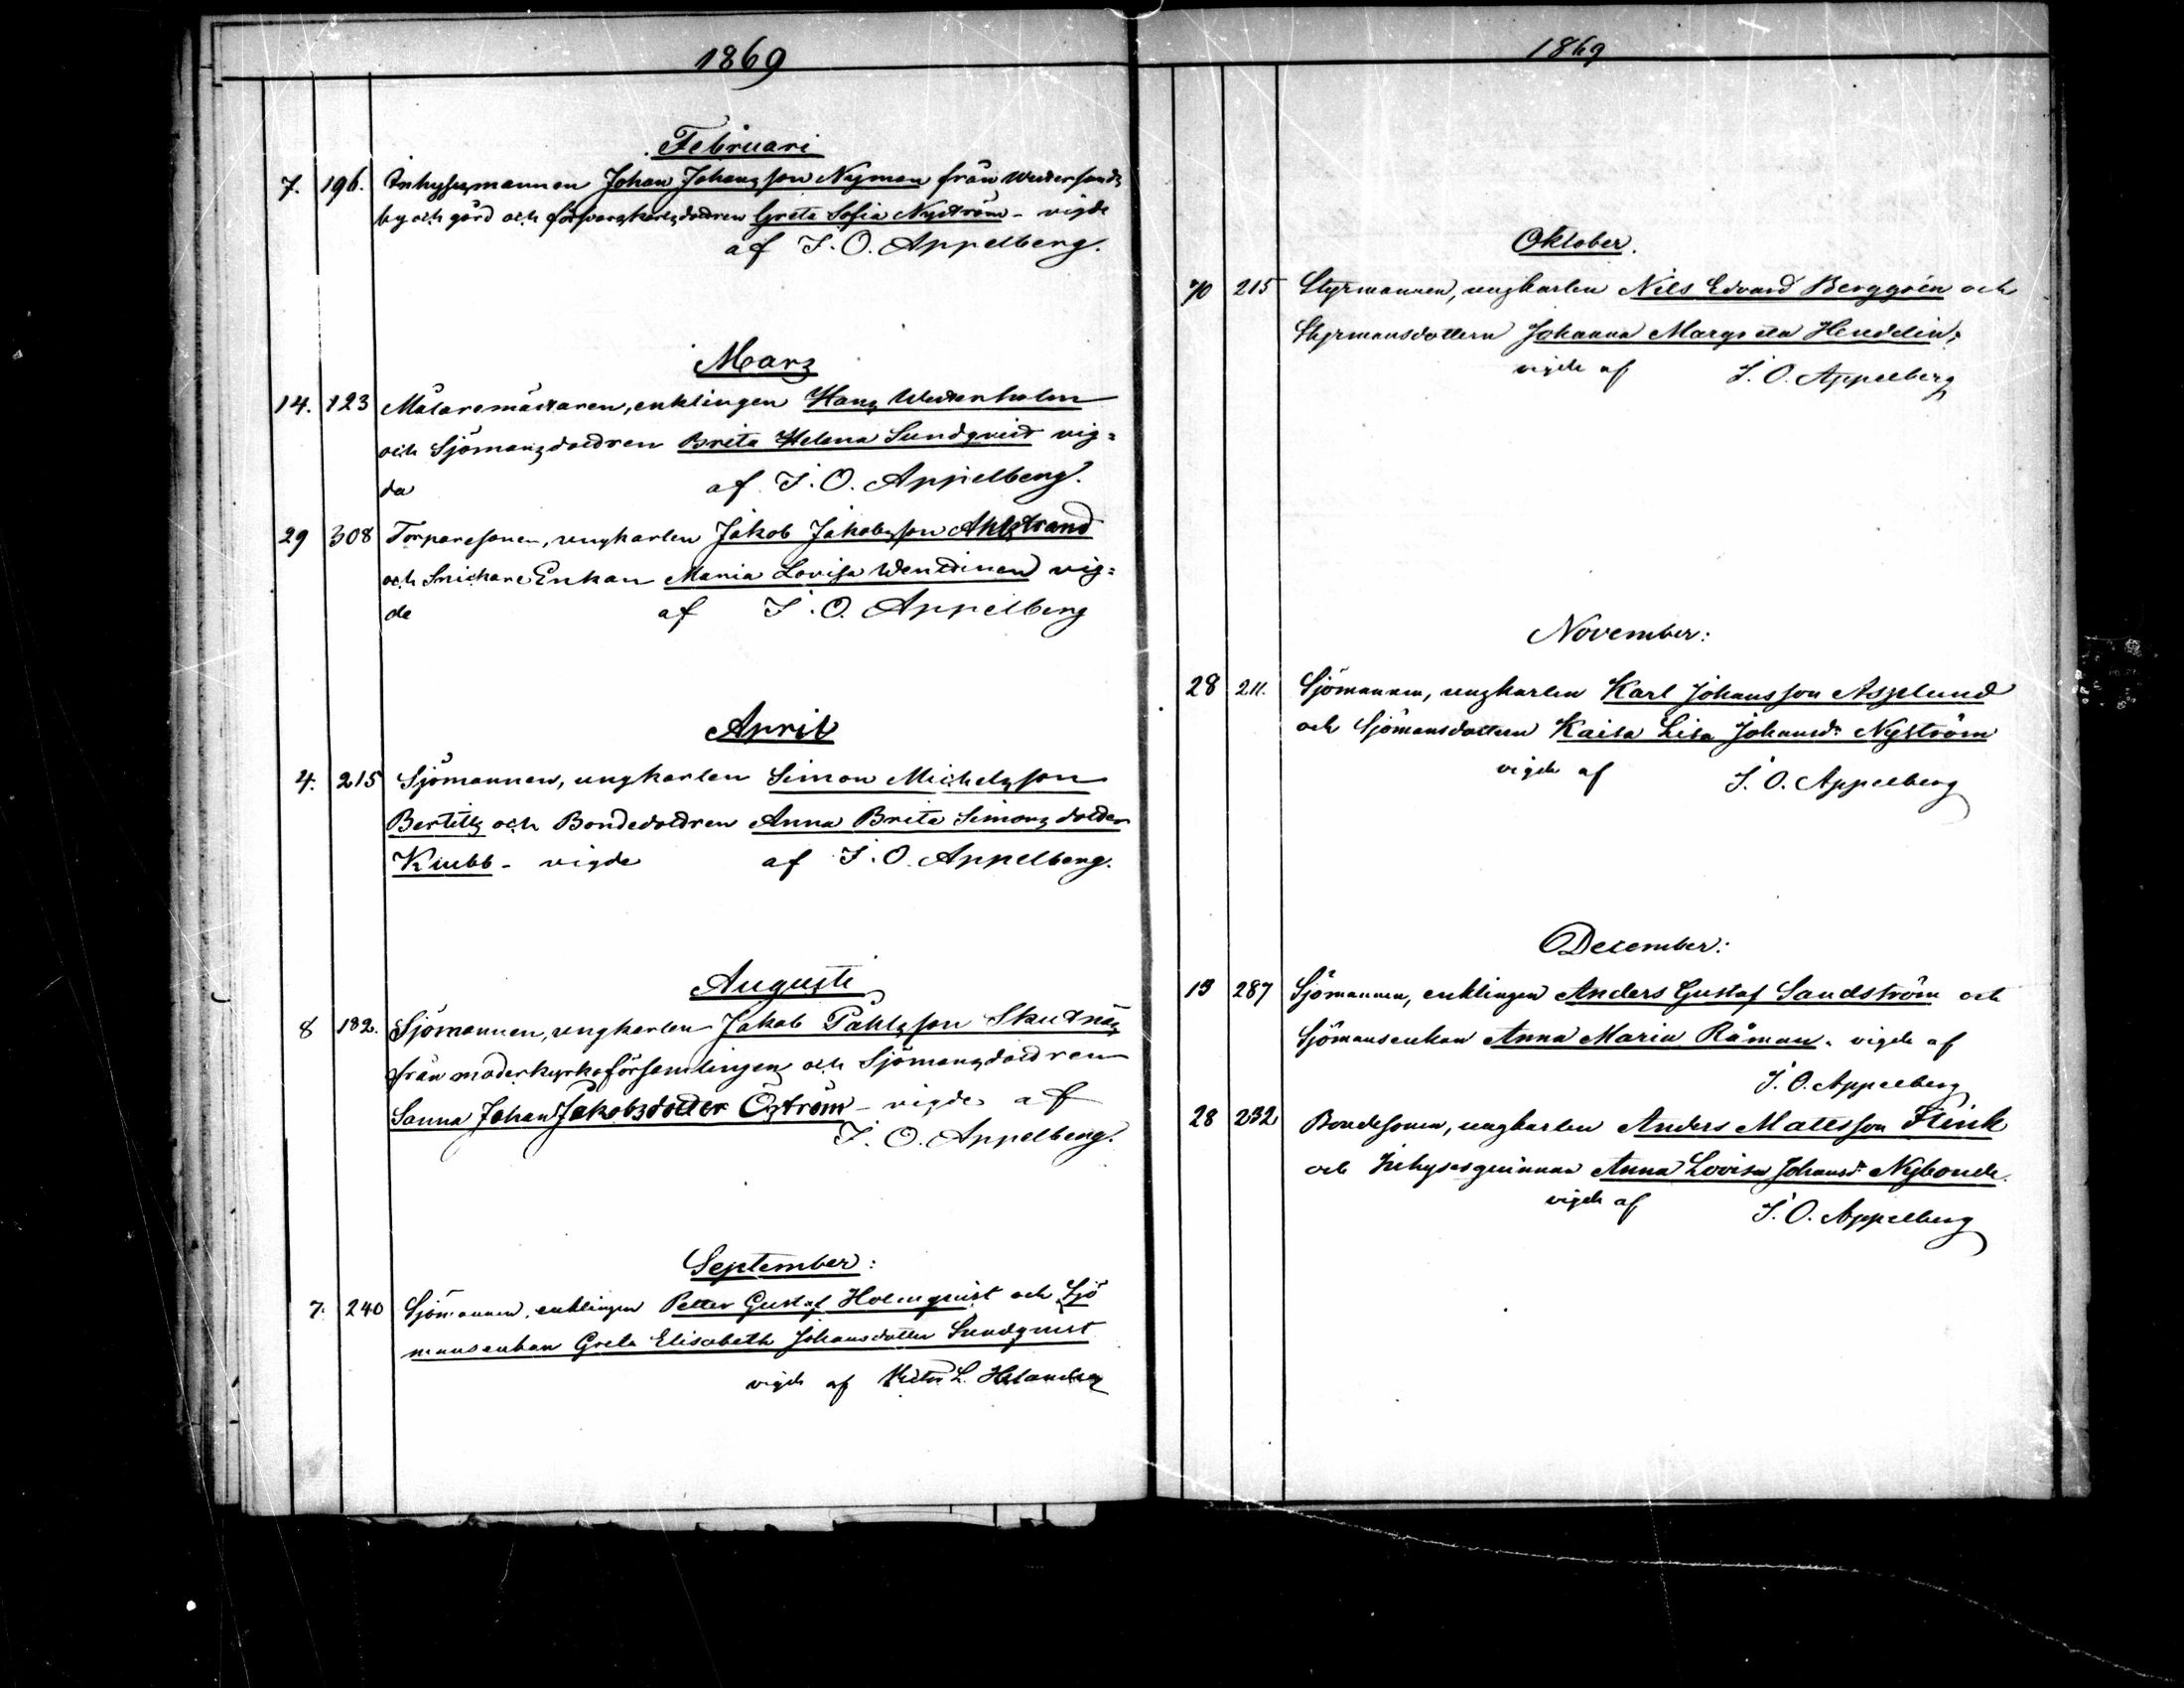 1869
Februari
7. 196. Inhysesmannen Johan Johansson Nyman från Westersunds
by och gård och försvarskarlsdottren Greta Sofia Nyström - vigde
af I. O. Appelberg.
Mars
14. 123 Målaremästaren, enklingen Hans Westerholm
och Sjömansdottren Brita Helena Sundqvist vig=
da af I. O. Appelberg.
29 308 Torparesonen, ungkarlen Jakob Jakobsson Ahlstrand
och Snickare Enkan Maria Lovisa vig=
de af I. O. Appelberg
April
4. 215 Sjömannen, ungkarlen Simon Michelsson
Bertils och Bondedottren Anna Brita Simonsdotter
Kiubb - vigde af I. O. Appelberg.
Augusti
8 182. Sjömannen, ungkarlen Jakob Påhlsson Skutnäs
från moderkyrkoförsamlingen och Sjömansdottren
Sanna Johan Jakobsdotter Öström - vigde af
I. O. Appelberg.
September:
7. 240 Sjömannen, enklingen Petter Gustaf Holmqvist och Sjö
mansenkan Greta Elisabeth Johansdotter Sundqvist
vigde af L. Helander
1869
Oktober.
10 215 Styrmannen, ungkarlen Nils Edvard Berggrén och
Styrmansdottern Johanna Margreta Heuddin,
vigde af I. O. Appelberg
November:
28 211. Sjömannen, ungkarlen Karl Johansson Asplund
och Sjömansdottern Kaisa Lisa Johansdr Nyström
vigde af I. O. Appelberg
December:
13 287 Sjömannen, enklingen Anders Gustaf Sandström och
Sjömansenkan Anna Maria Råman. vigde af
I. O. Appelberg
28 232 Bondesonen, ungkarlen Anders Mattsson Flink
och Inhysesqvinnan Anna Lovisa Johansdr Nybonde.
vigde af I. O. Appelberg